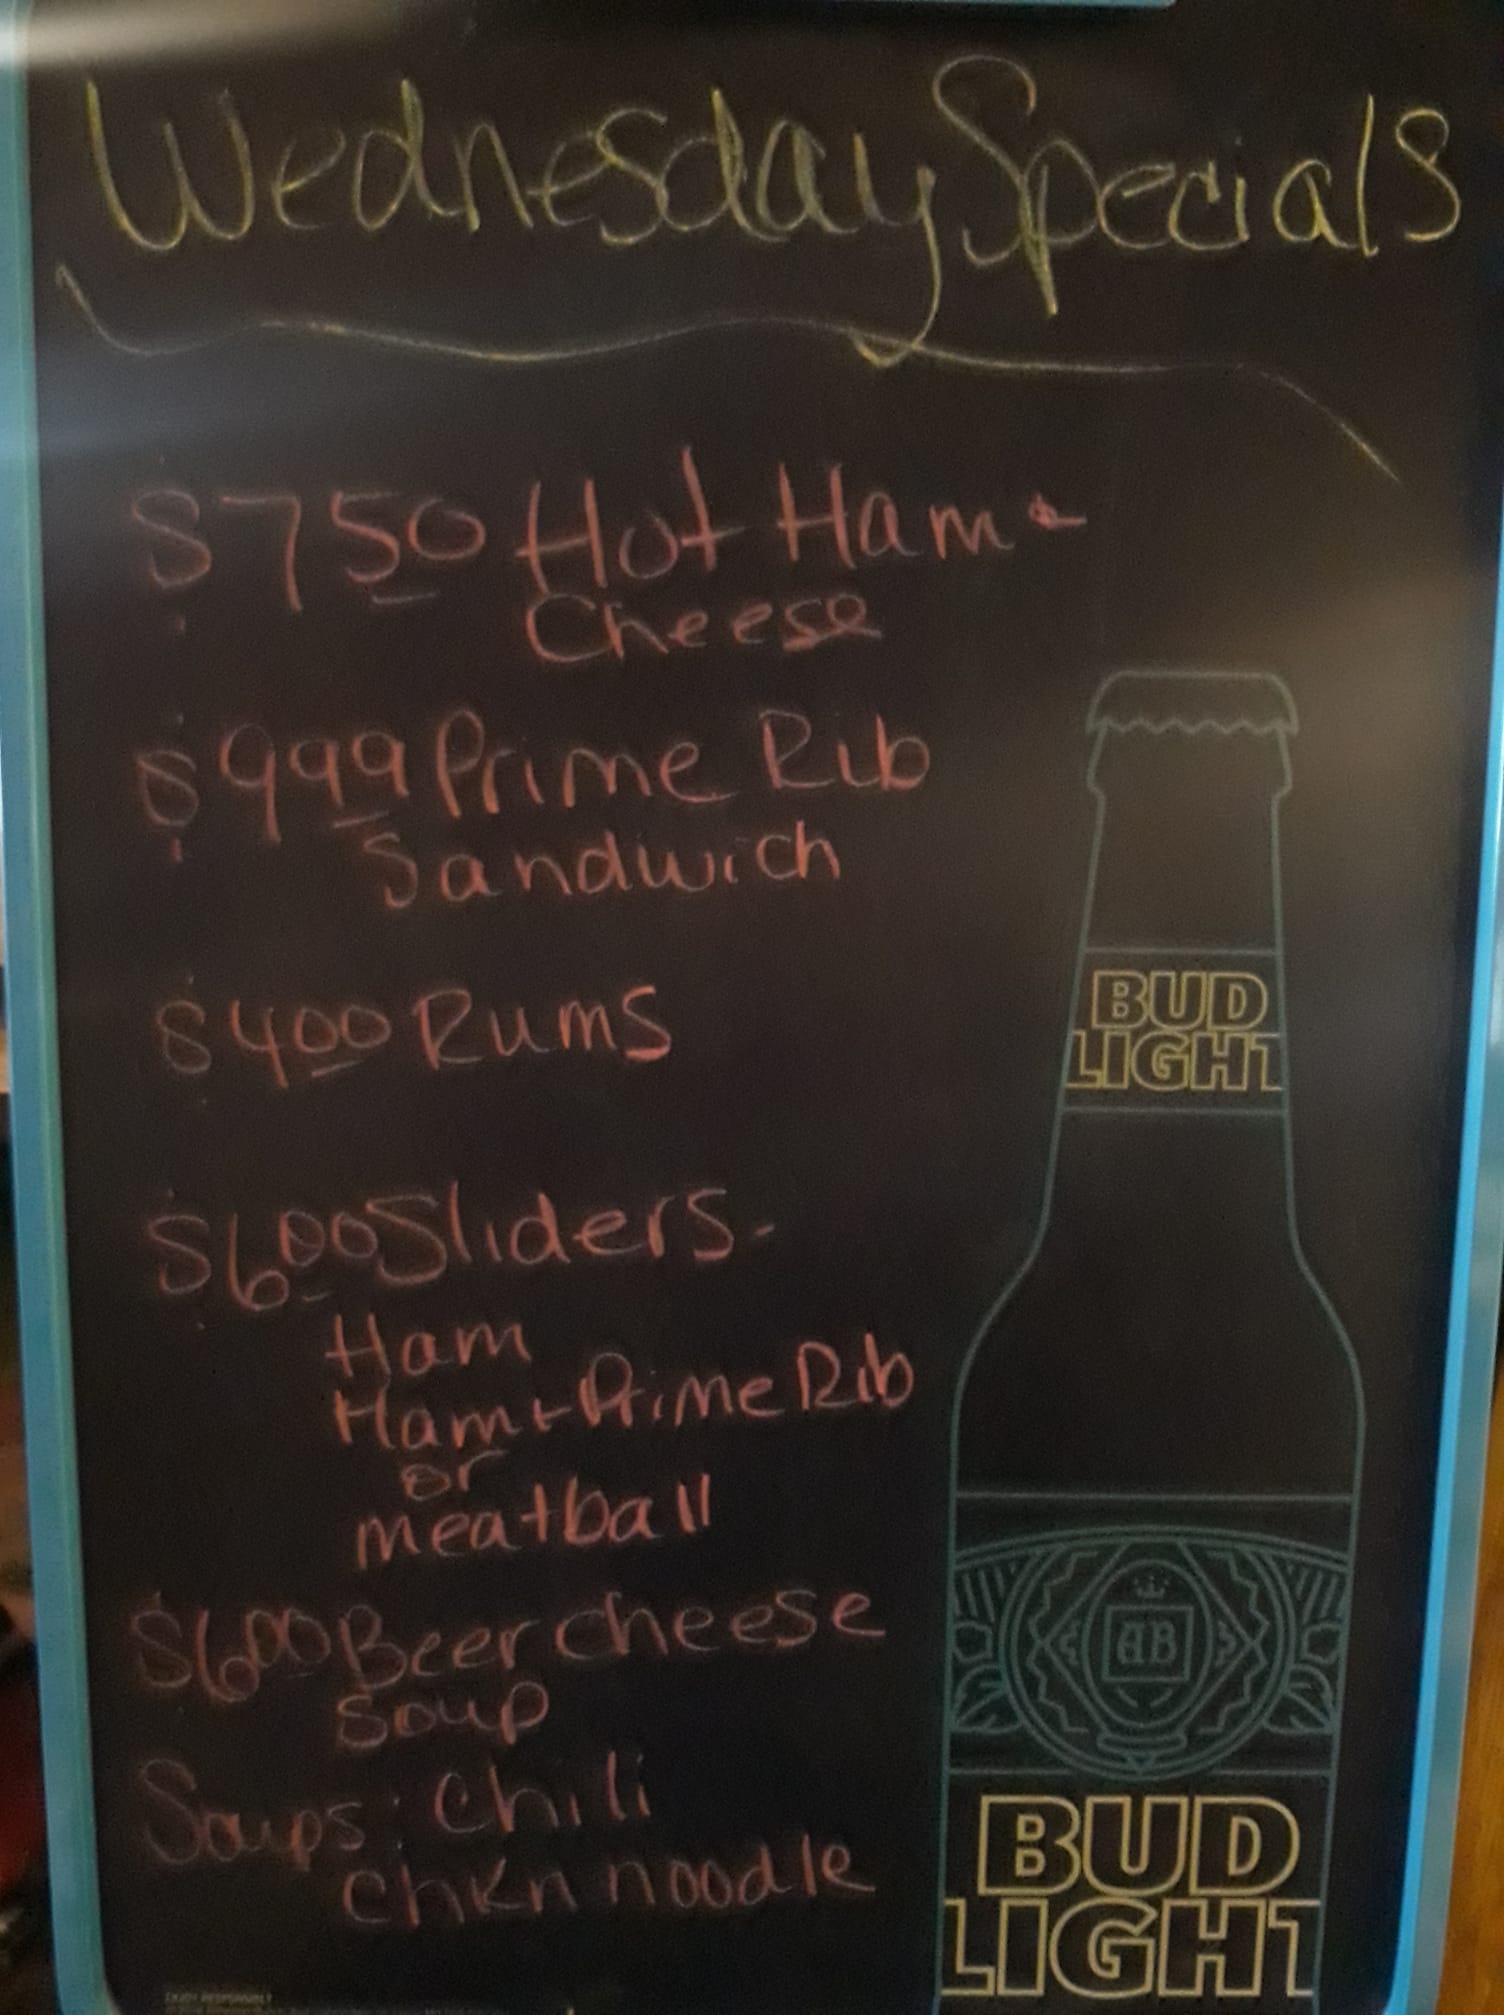 Wednesday Specials
$750 Hot Ham &
Cheese
$999 Prime Rib
Sandwich
$400 Rums
$600 Sliders-
Ham
Ham + Prime Rib
or
meatball
$600 Beer cheese
Soup
Soups: Chili
Chkn noodle
BUD
LIGHT
AB
BUD
LIGHT
ENJOY RESPONSIBLY